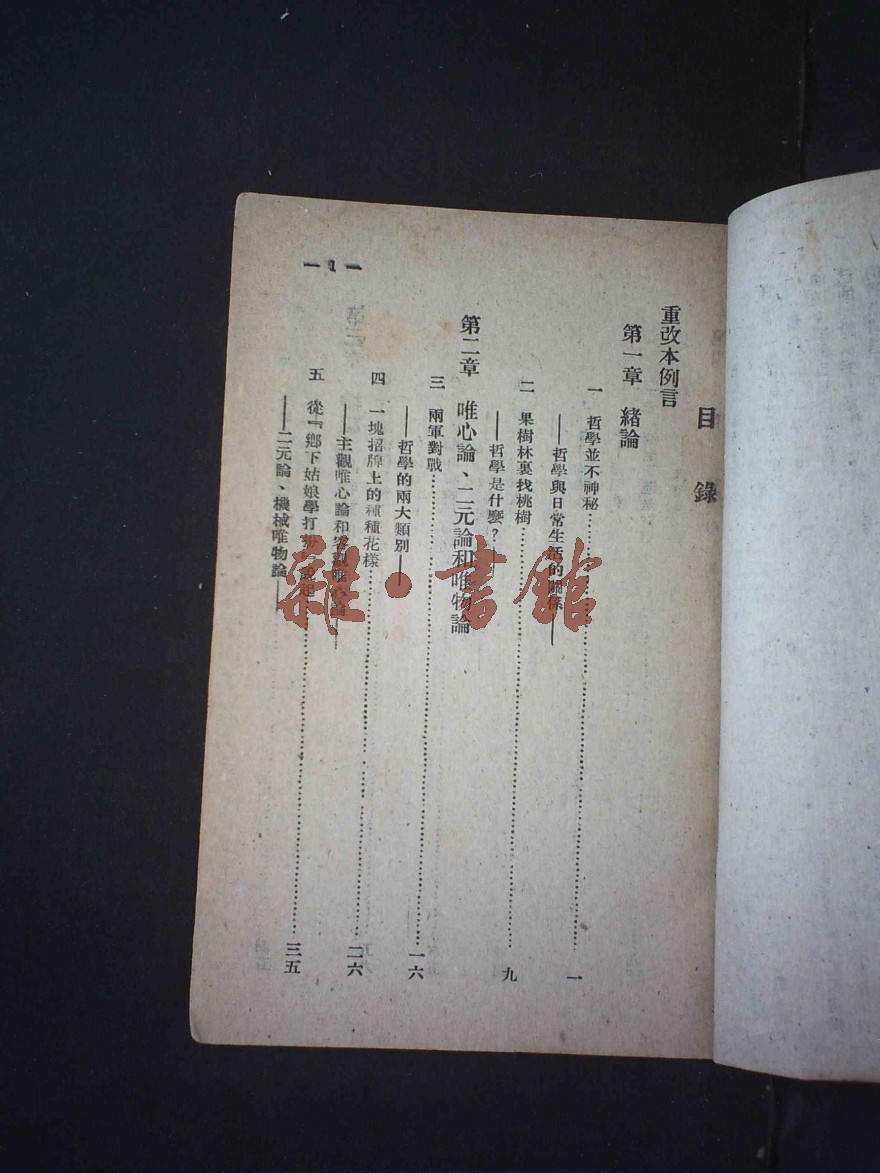 目錄
重改本例言
第一章 緒論
一 哲學並不神秘……一
——哲學與日常生活的關係——
二 果樹林裏找桃樹……九
——哲學是什麼？——
第二章 唯心論、二元論和唯物論
三 兩軍對戰……一六
——哲學的兩大類別——
四 一塊招牌上的種種花樣……二六
——主觀唯心論和客觀唯心論——
五 從「鄉下姑娘學打扮」說起……三五
——二元論、機械唯物論——
— 1 —
雜·書館